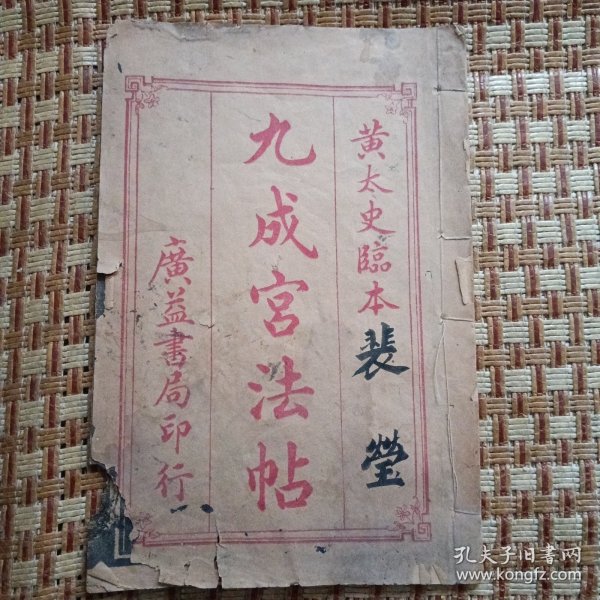 黃太史臨本
裴瑩
九成宮法帖
廣益書局印行
孔夫子旧書网
www.kongfz.com